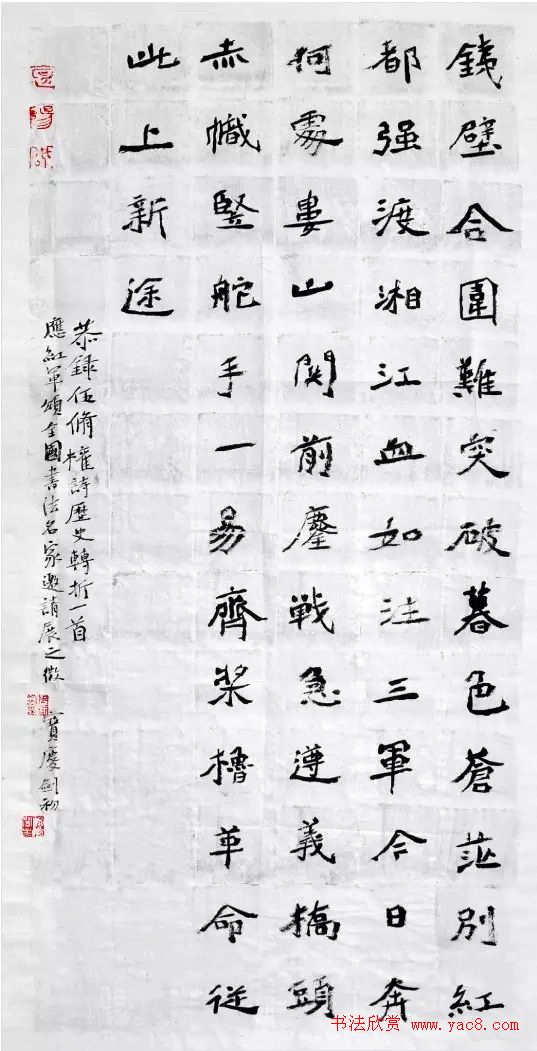 銕壁合圍難突破暮色蒼茫別紅
都强渡湘江血如注三軍今日奔
何處婁山関前鏖戰急遵義橋頭
赤幟竪舵手一易齊桨櫓革命從
此上新途
恭録伍脩權詩歷史轉折一首
應紅軍頌全國書法名家邀請展之徵 寶慶劍初
书法欣赏 www.yac8.com